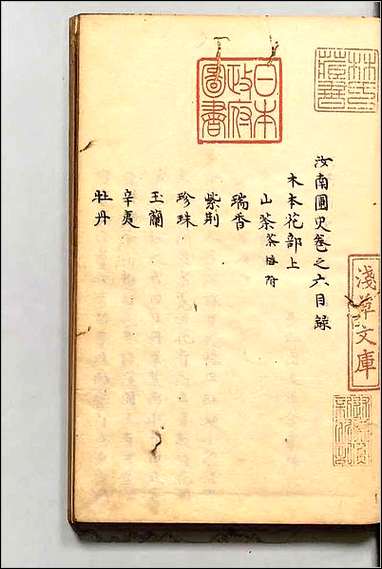 汝南圃史卷之六目錄
木本花部上
山茶 茶梅附
瑞香
紫荆
珍珠
玉蘭
辛夷
牡丹
日本
政府
圖書
淺草文庫
林氏
藏書